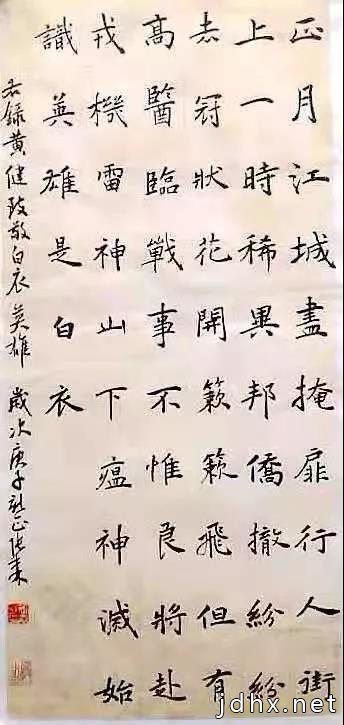 正月江城盡掩扉行人街
上一時稀異邦僑撤紛紛
去冠狀花開簌簌飛但有
高醫臨戰事不惟良將赴
戎機雷神山下瘟神滅始
識英雄是白衣
右錄黃健致敬白衣英雄 歲次庚子新正
jdhx.net